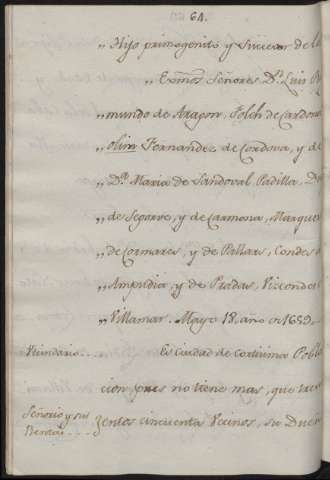 64.
„ Hijo primogenito y Sucesor de lo
„ Exmos. Señores Dn. Luis
„ mundo de Aragon, Folch de Cardona
„ olim Fernandez de Cordova, y de
„ Da. Maria de Sandoval Padilla, D
„ de Segorve, y de Cardona, Marques
„ de Comares, y de Pallars, Condes d
„ Ampudia, y de Prades, Viscondes
„ Villamur. Mayo 18, año 1659.
Vecindario.... Es Ciudad de cortisima Pobla
cion, pues no tiene mas, que
Señorio y sus zentos cincuenta Vecinos, su Dueñ
Rentas....